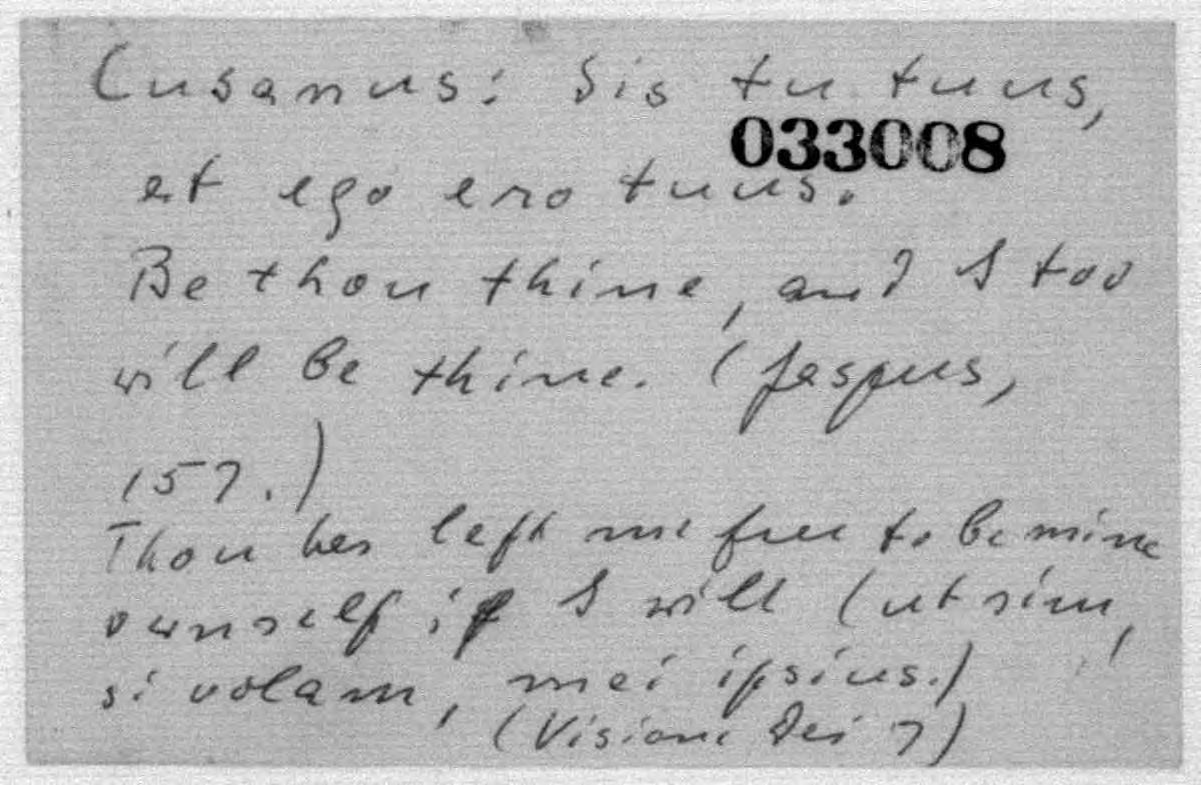 Cusanus: Sis tu tuus,
033008
et ego ero tuus.
Be thou thine, and I too
will be thine. (Jaspers,
157.)
Thou has left me free to be mine
ownself if I will (ut sim,
si volam, mei ipsius.)
(Visione Dei 7)